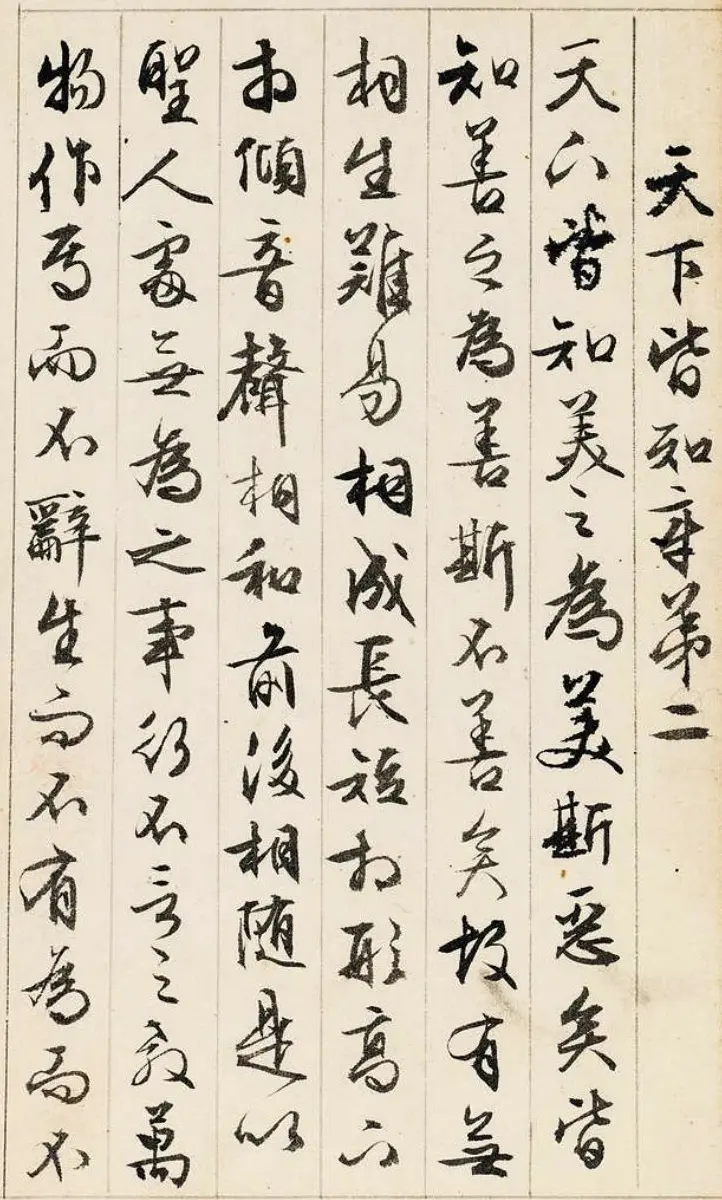 天下皆知章第二
天下皆知美之為美斯惡矣皆
知善之為善斯不善矣故有無
相生難易相成長短相形高下
相傾音聲相和前後相随是以
聖人處無為之事行不言之教萬
物作焉而不辭生而不有為而不